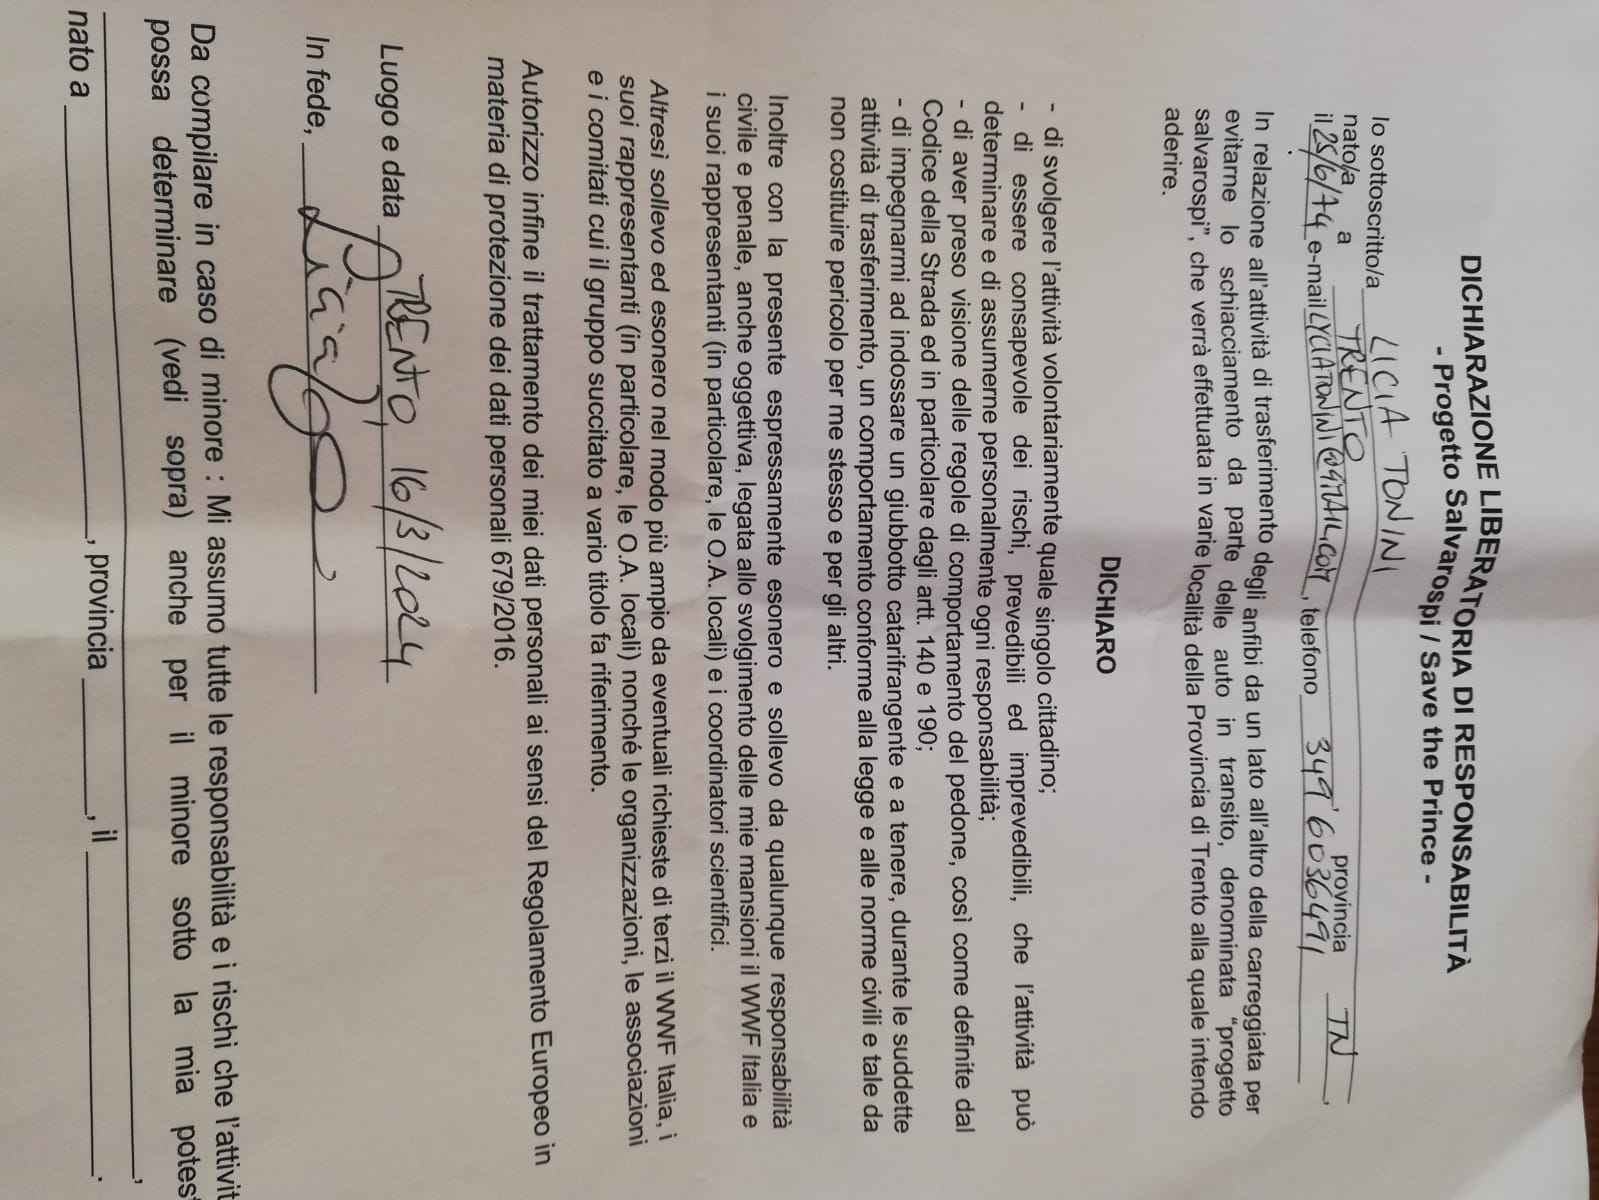 DICHIARAZIONE LIBERATORIA DI RESPONSABILITÀ
- Progetto Salvarospi / Save the Prince -
Io sottoscritto/a LICIA TONINI
nato/a a TRENTO provincia TN,
il 25/6/74 e-mail LYCIATONINI@GMAIL.COM, telefono 349'6036491
In relazione all'attività di trasferimento degli anfibi da un lato all'altro della carreggiata per
evitarne lo schiacciamento da parte delle auto in transito, denominata "progetto
salvarospi", che verrà effettuata in varie località della Provincia di Trento alla quale intendo
aderire.
DICHIARO
- di svolgere l'attività volontariamente quale singolo cittadino;
- di essere consapevole dei rischi, prevedibili ed imprevedibili, che l'attività può
determinare e di assumerne personalmente ogni responsabilità;
- di aver preso visione delle regole di comportamento del pedone, così come definite dal
Codice della Strada ed in particolare dagli artt. 140 e 190;
- di impegnarmi ad indossare un giubbotto catarifrangente e a tenere, durante le suddette
attività di trasferimento, un comportamento conforme alla legge e alle norme civili e tale da
non costituire pericolo per me stesso e per gli altri.
Inoltre con la presente espressamente esonero e sollevo da qualunque responsabilità
civile e penale, anche oggettiva, legata allo svolgimento delle mie mansioni il WWF Italia e
i suoi rappresentanti (in particolare, le O.A. locali) e i coordinatori scientifici.
Altresì sollevo ed esonero nel modo più ampio da eventuali richieste di terzi il WWF Italia, i
suoi rappresentanti (in particolare, le O.A. locali) nonché le organizzazioni, le associazioni
e i comitati cui il gruppo succitato a vario titolo fa riferimento.
Autorizzo infine il trattamento dei miei dati personali ai sensi del Regolamento Europeo in
materia di protezione dei dati personali 679/2016.
Luogo e data TRENTO, 16/3/2024
In fede,
Da compilare in caso di minore : Mi assumo tutte le responsabilità e i rischi che l'attivit
possa determinare (vedi sopra) anche per il minore sotto la mia potest
,
nato a , provincia , il .